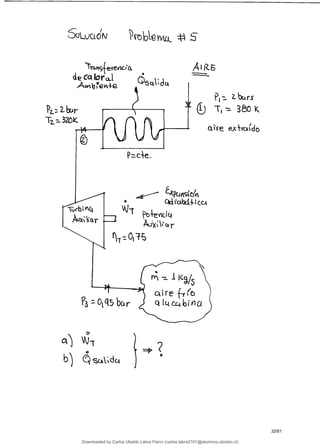 SOLUCIÓN Problema # 5
Transferencia
de calor al
Ambiente
Q̇salida
AIRE
P₁ = 2 bars
① T₁ = 380 K
aire extraído
P₂ = 2 bar
T₂ = 320K
②
P=cte.
Expansión
adiabática
Turbina
Auxiliar
ẆT potencia
Auxiliar
ηT = 0,75
ṁ = 1 Kg/s
aire frío
a la cabina
P₃ = 0,95 bar
a) ẆT
b) Q̇salida
⇒ ?
32/81
Downloaded by Carlos Ubaldo Labra Fierro (carlos.labra2101@alumnos.ubiobio.cl)